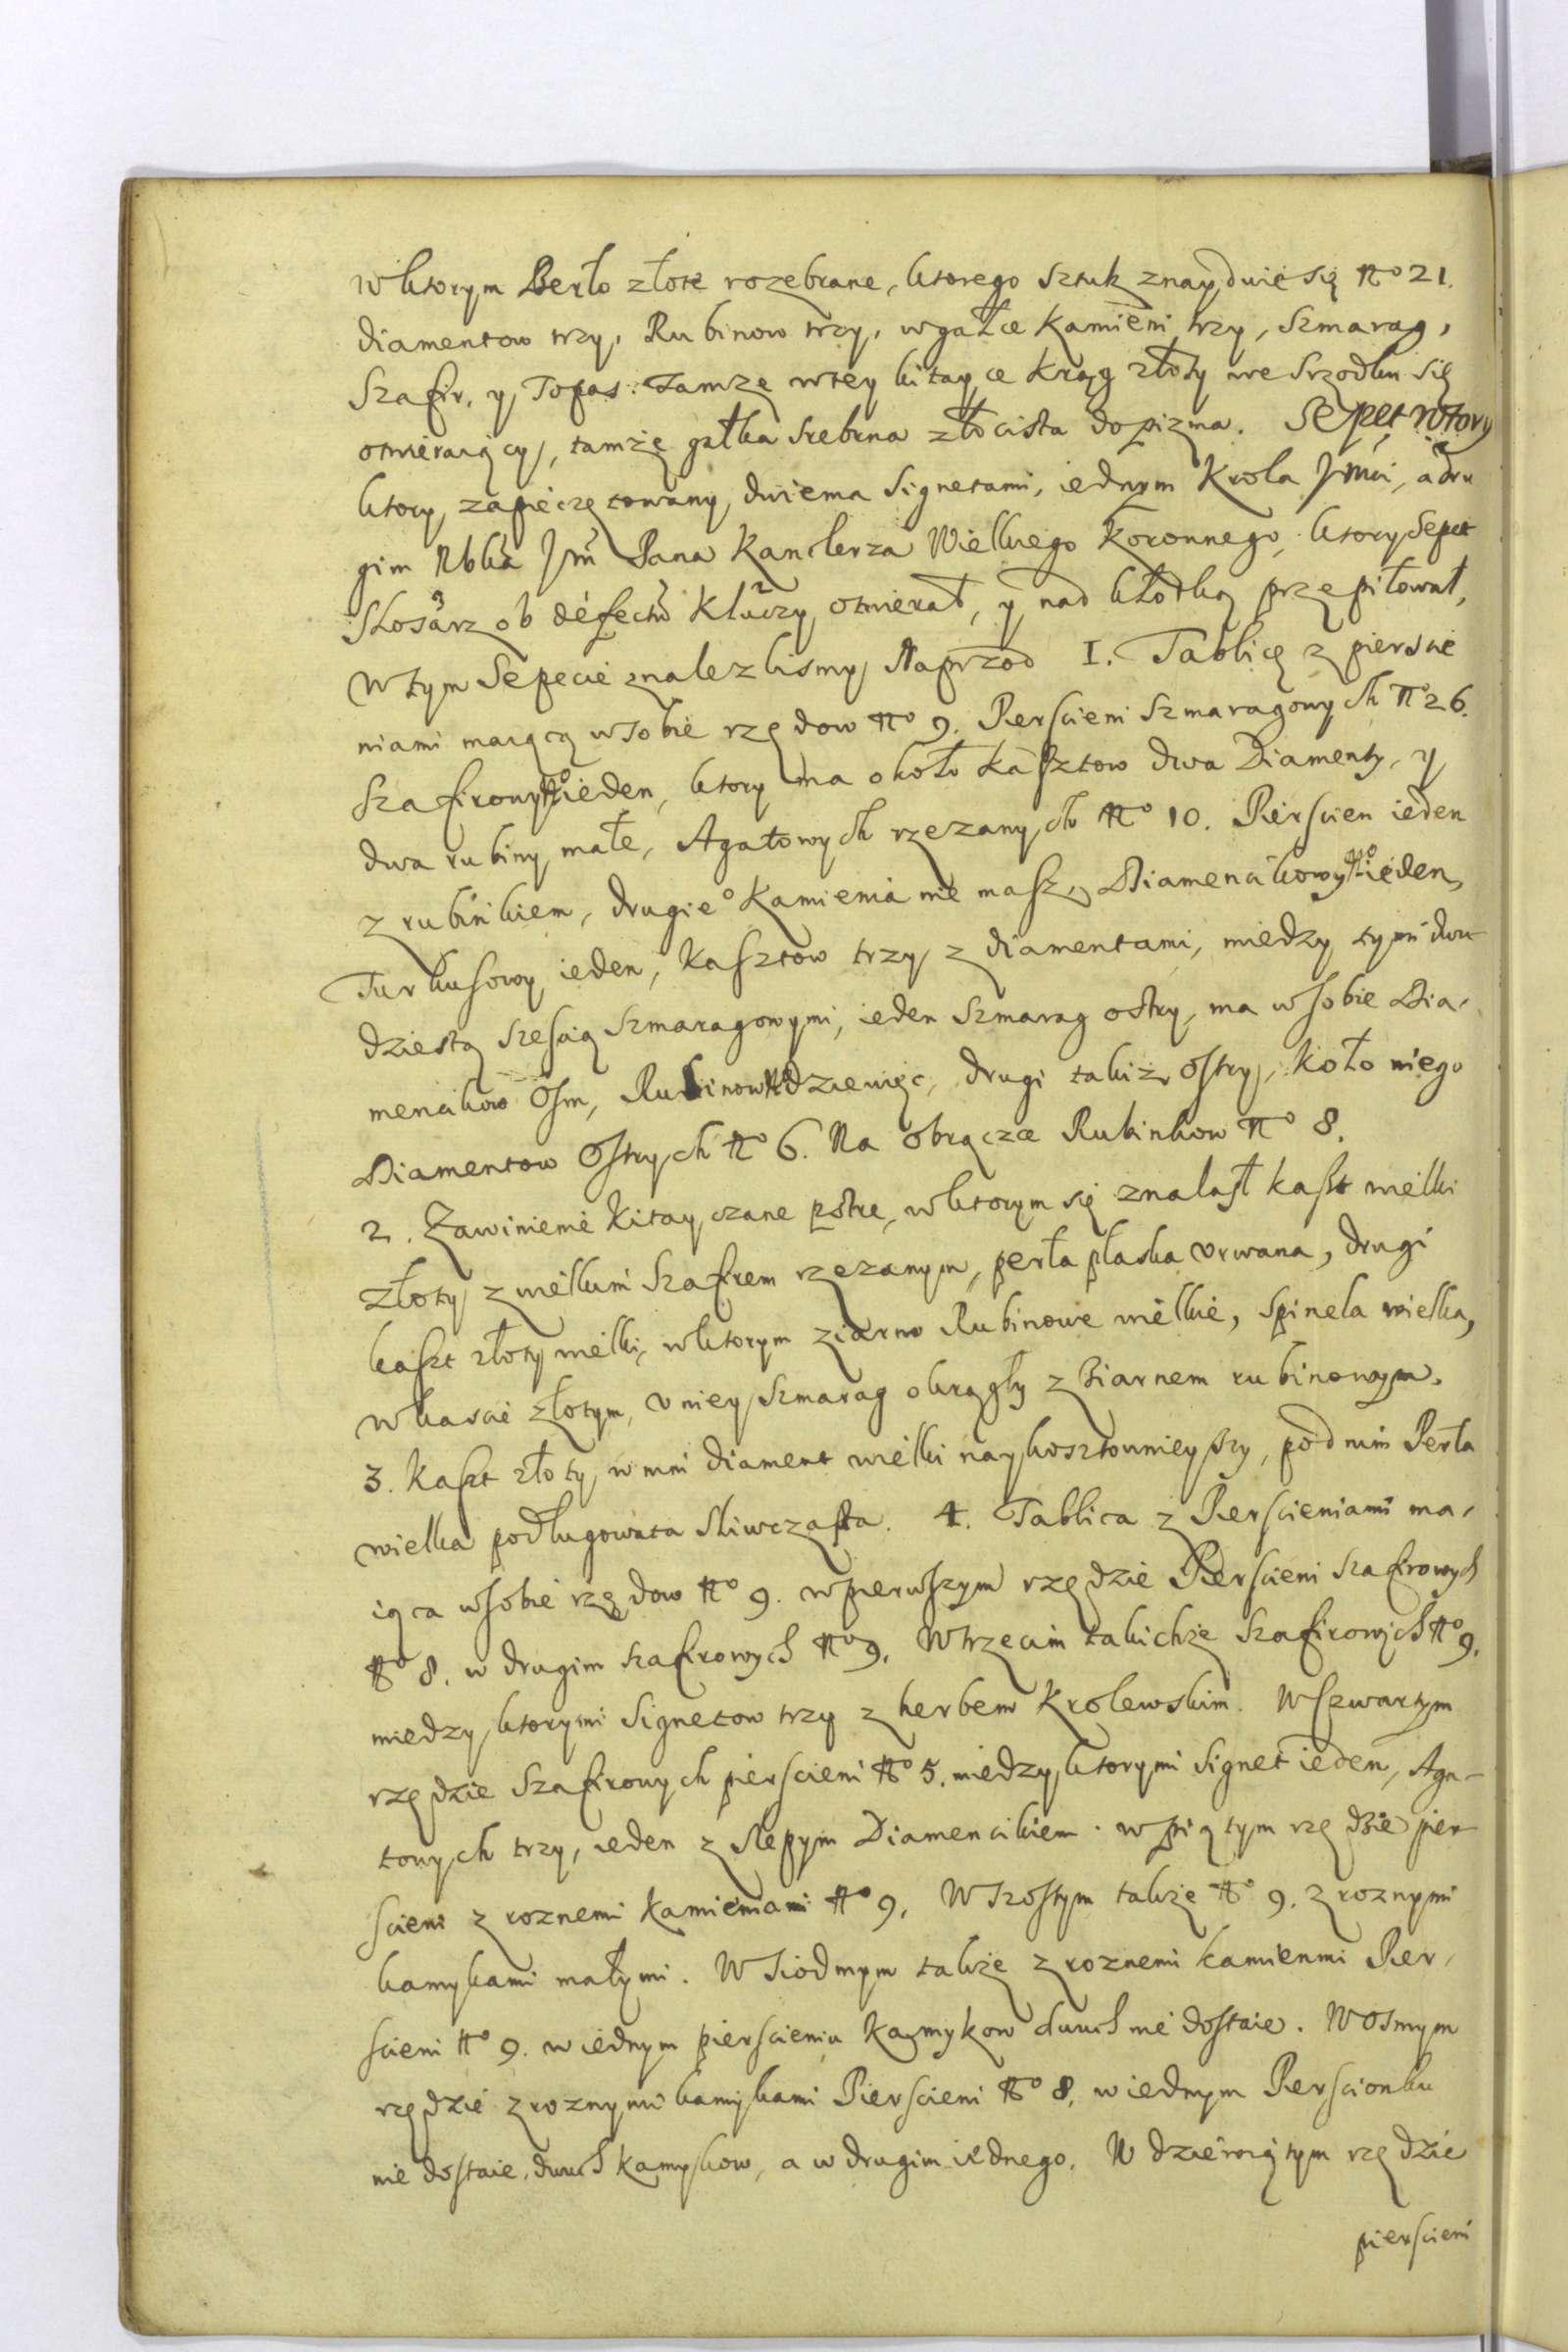 w ktorym Berło złote rozebrane, ktorego sztuk znayduie się No 21.
diamentow trzy, Rubinow trzy, w gałce kamieni trzy, szmarag,
szafir, y Topas. Tamze w tey kitayce Krąg złoty we srzodku się
otwieraiący, tamże gałka srebrna złocista do pizma. Sepet wtory
ktory zapieczętowany dwiema Signetami, iednym Krola Jmci, a dru
gim Jm Pana Kanclerza Wielkiego Koronnego, ktory Sepet
Slosarz ob defectu kluczy otwierał, y nad kłodką przepiłował,
w tym Sepecie znalezlismy Naprzod I. Tablicę z pierscie
niami maiącą w sobie rzędow No 9. Pierscieni Szmaragowych No 26.
Szafirowy No ieden, ktory ma około kasztow dwa Diamenty, y
dwa rubiny małe, Agatowych rzezanych No 10. Pierscien ieden
z rubinkiem, drugieo kamienia nie masz, Diamencikowy No ieden,
Turkusowy ieden, kasztow trzy z diamentami, miedzy tymi dwu-
dziestą szescią szmaragowymi, ieden szmarag ostry, ma w sobie Dia-
mencikow Osm, Rubinow No dziewięc, drugi takiż ostry, koło niego
Diamentow Ostrych No 6. Na obrączce Rubinkow No 8.
2. Zawinienie kitayczane pstre, w ktorym się znalasł kaszt wielki
złoty z wielkim szafirem rzezanym, perła płaska urwana, drugi
kaszt złoty wielki, w ktorym ziarno Rubinowe wielkie, spinela wielka,
w kascie złotym, u niey szmarag okrągły z Ziarnem rubinowym.
3. Kaszt złoty, w nim diament wielki naykosztownieyszy, pod nim Perła
wielka podługowata sliwczasta. 4. Tablica z Pierscieniami ma-
iąca w sobie rzędow No 9. w pierwszym rzędzie Pierscieni szafirowych
No 8. w drugim szafirowych No 9. W trzecim takichze szafirowych No 9.
miedzy ktorymi Signetow trzy z herbem Krolewskim. W czwartym
rzędzie Szafirowych pierscieni No 5. miedzy ktorymi signet ieden, Aga-
towych trzy, ieden z slepym Diamencikiem. w piątym rzędzie pier-
scieni z roznemi kamieniami No 9. W szostym takze No 9. z roznymi
kamykami małymi. W siodmym takze z roznemi kamienmi Pier-
scieni No 9. w iednym pierscieniu kamykow dwuch nie dostaie. W osmym
rzędzie z roznymi kamykami Pierscieni No 8. w iednym Pierscionku
nie dostaie dwuch kamykow, a w drugim iednego. W dziewiątym rzędzie
pierscieni